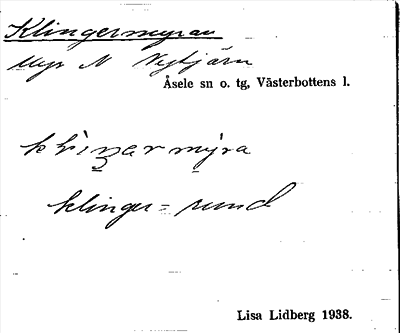 Klingermyran
Myr N Nytjärn
Åsele sn o. tg, Västerbottens l.
klìŋarmy̱ra
klinger = rund
Lisa Lidberg 1938.